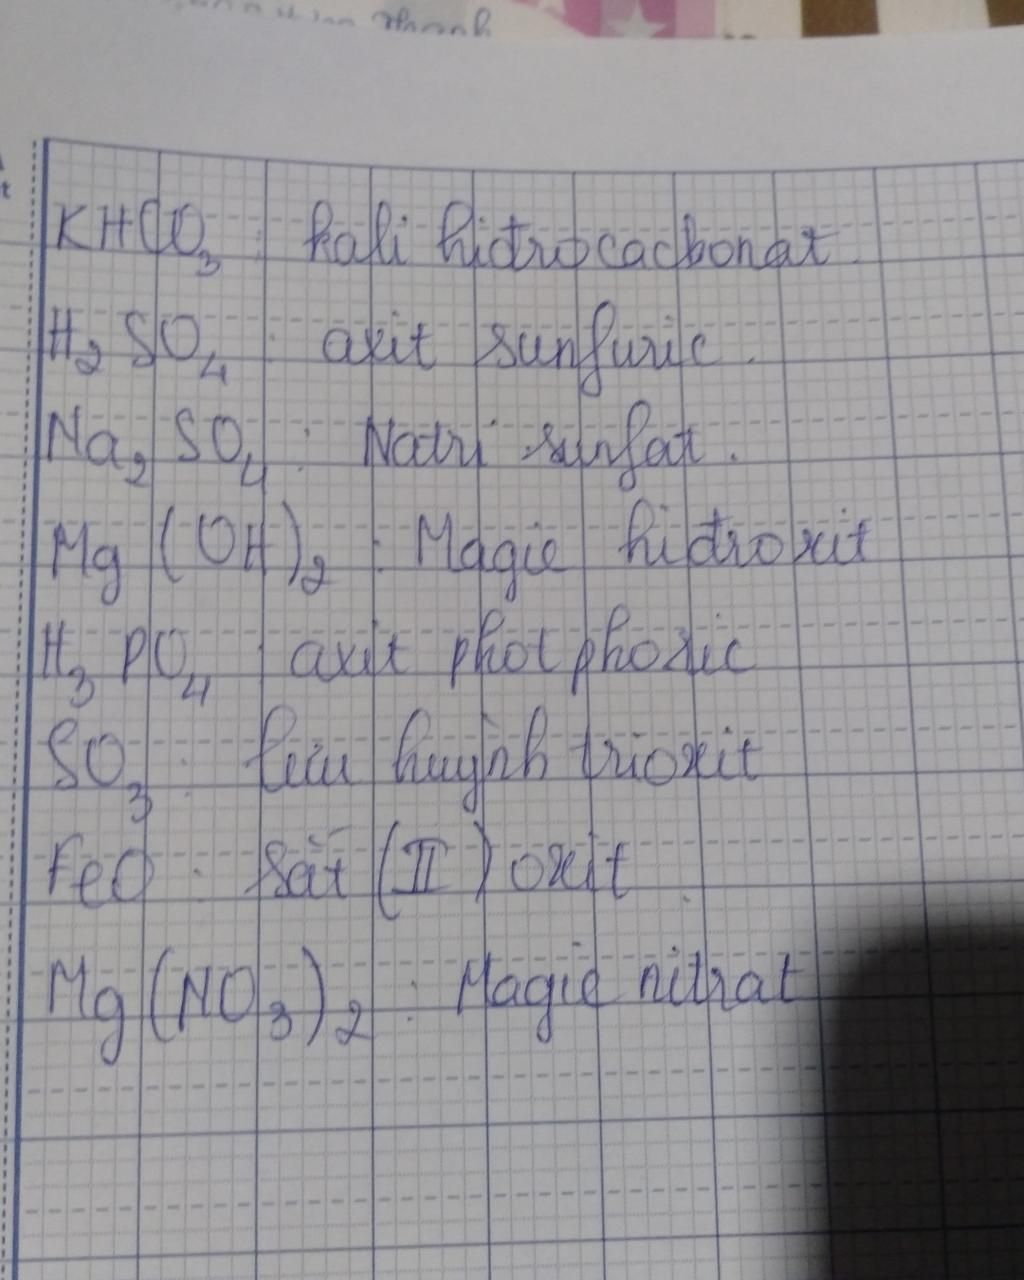 KHCO₃ : kali hidrocacbonat.
H₂SO₄ : axit sunfuric.
Na₂SO₄ : Natri sunfat.
Mg(OH)₂ : Magie hidroxit
H₃PO₄ : axit photphoric
SO₃ : lưu huỳnh trioxit
FeO : Sắt (II) oxit.
Mg(NO₃)₂ : Magie nitrat